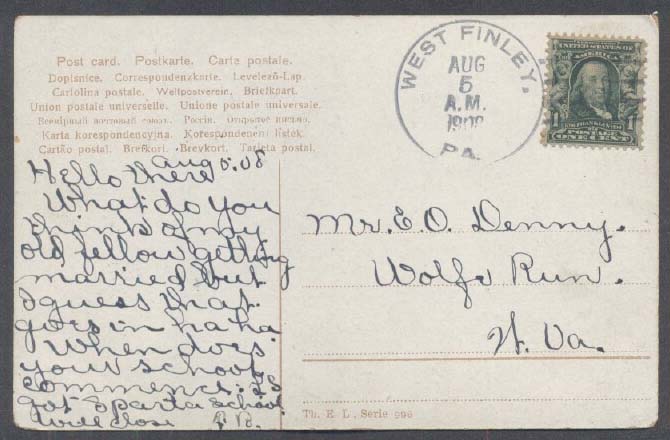 Post card. Postkarte. Carte postale.
Dopisnice. Correspondenzkarte. Levelező-Lap.
Cartolina postale. Weltpostverein. Briefkart.
Union postale universelle. Unione postale universale.
Всемірный почтовый союзъ. Россія. Открытое письмо.
Karta korespondencyjna. Korespondenční lístek.
Cartão postal. Brefkort. Brevkort. Tarjeta postal.
Aug 5.08
Hello there
What do you
think of my
old fellow getting
married but
I guess that
goes in ha ha
When does
your school
commence. I
got Sparta school
Will close
WEST FINLEY.
AUG
5
A.M.
1908
PA.
UNITED STATES OF
AMERICA
FRANKLIN
POSTAGE
ONE CENT
Mr. E. O. Denny.
Wolfe Run.
W. Va.
Th. E. L. Serie 996